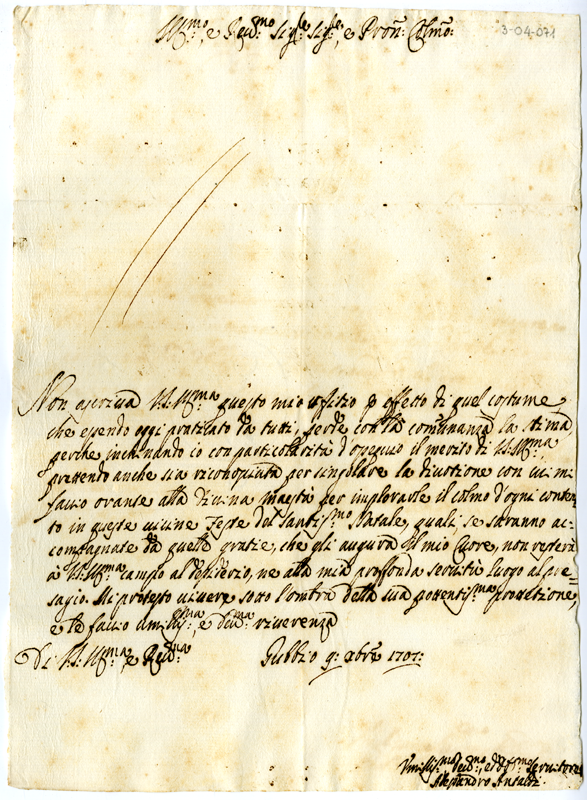 Ill:mo, e Red:mo Sig:re Sig:re, e Pron: Colmo:
3-04-071
Non ascriva V.S. Ill:ma questo mio offitio p effetto di quel costume
che essendo oggi praticato da tutti, perde con la comunanza la stima,
perche inchinando io con particolarità d'ossequio il merito di V.S. Ill:ma
prettendo anche sia riconosciuta per singolare la divotione con cui mi
faccio avante alla Divina maestà per implorarle il colmo d'ogni conten
to in queste vicine feste del Santiss:mo Natale, quali se saranno ac:
compagnate da quelle gratie, che gli augura il mio Cuore, non resterà
à V.S. Ill:ma campo al desiderio, ne alla mia profonda servitù luogo al pre=
sagio. Mi protesto vivere sotto l'ombra della sua potentiss:ma protettione,
e le faccio Umiliss:ma, e dev:ma riverenza
Di V.S. Ill:ma, e Red:ma Gubbio 9:abre 1707:
Umiliss:mo Dev:mo, ed Obl:mo Servitore
Alessandro Antaldi